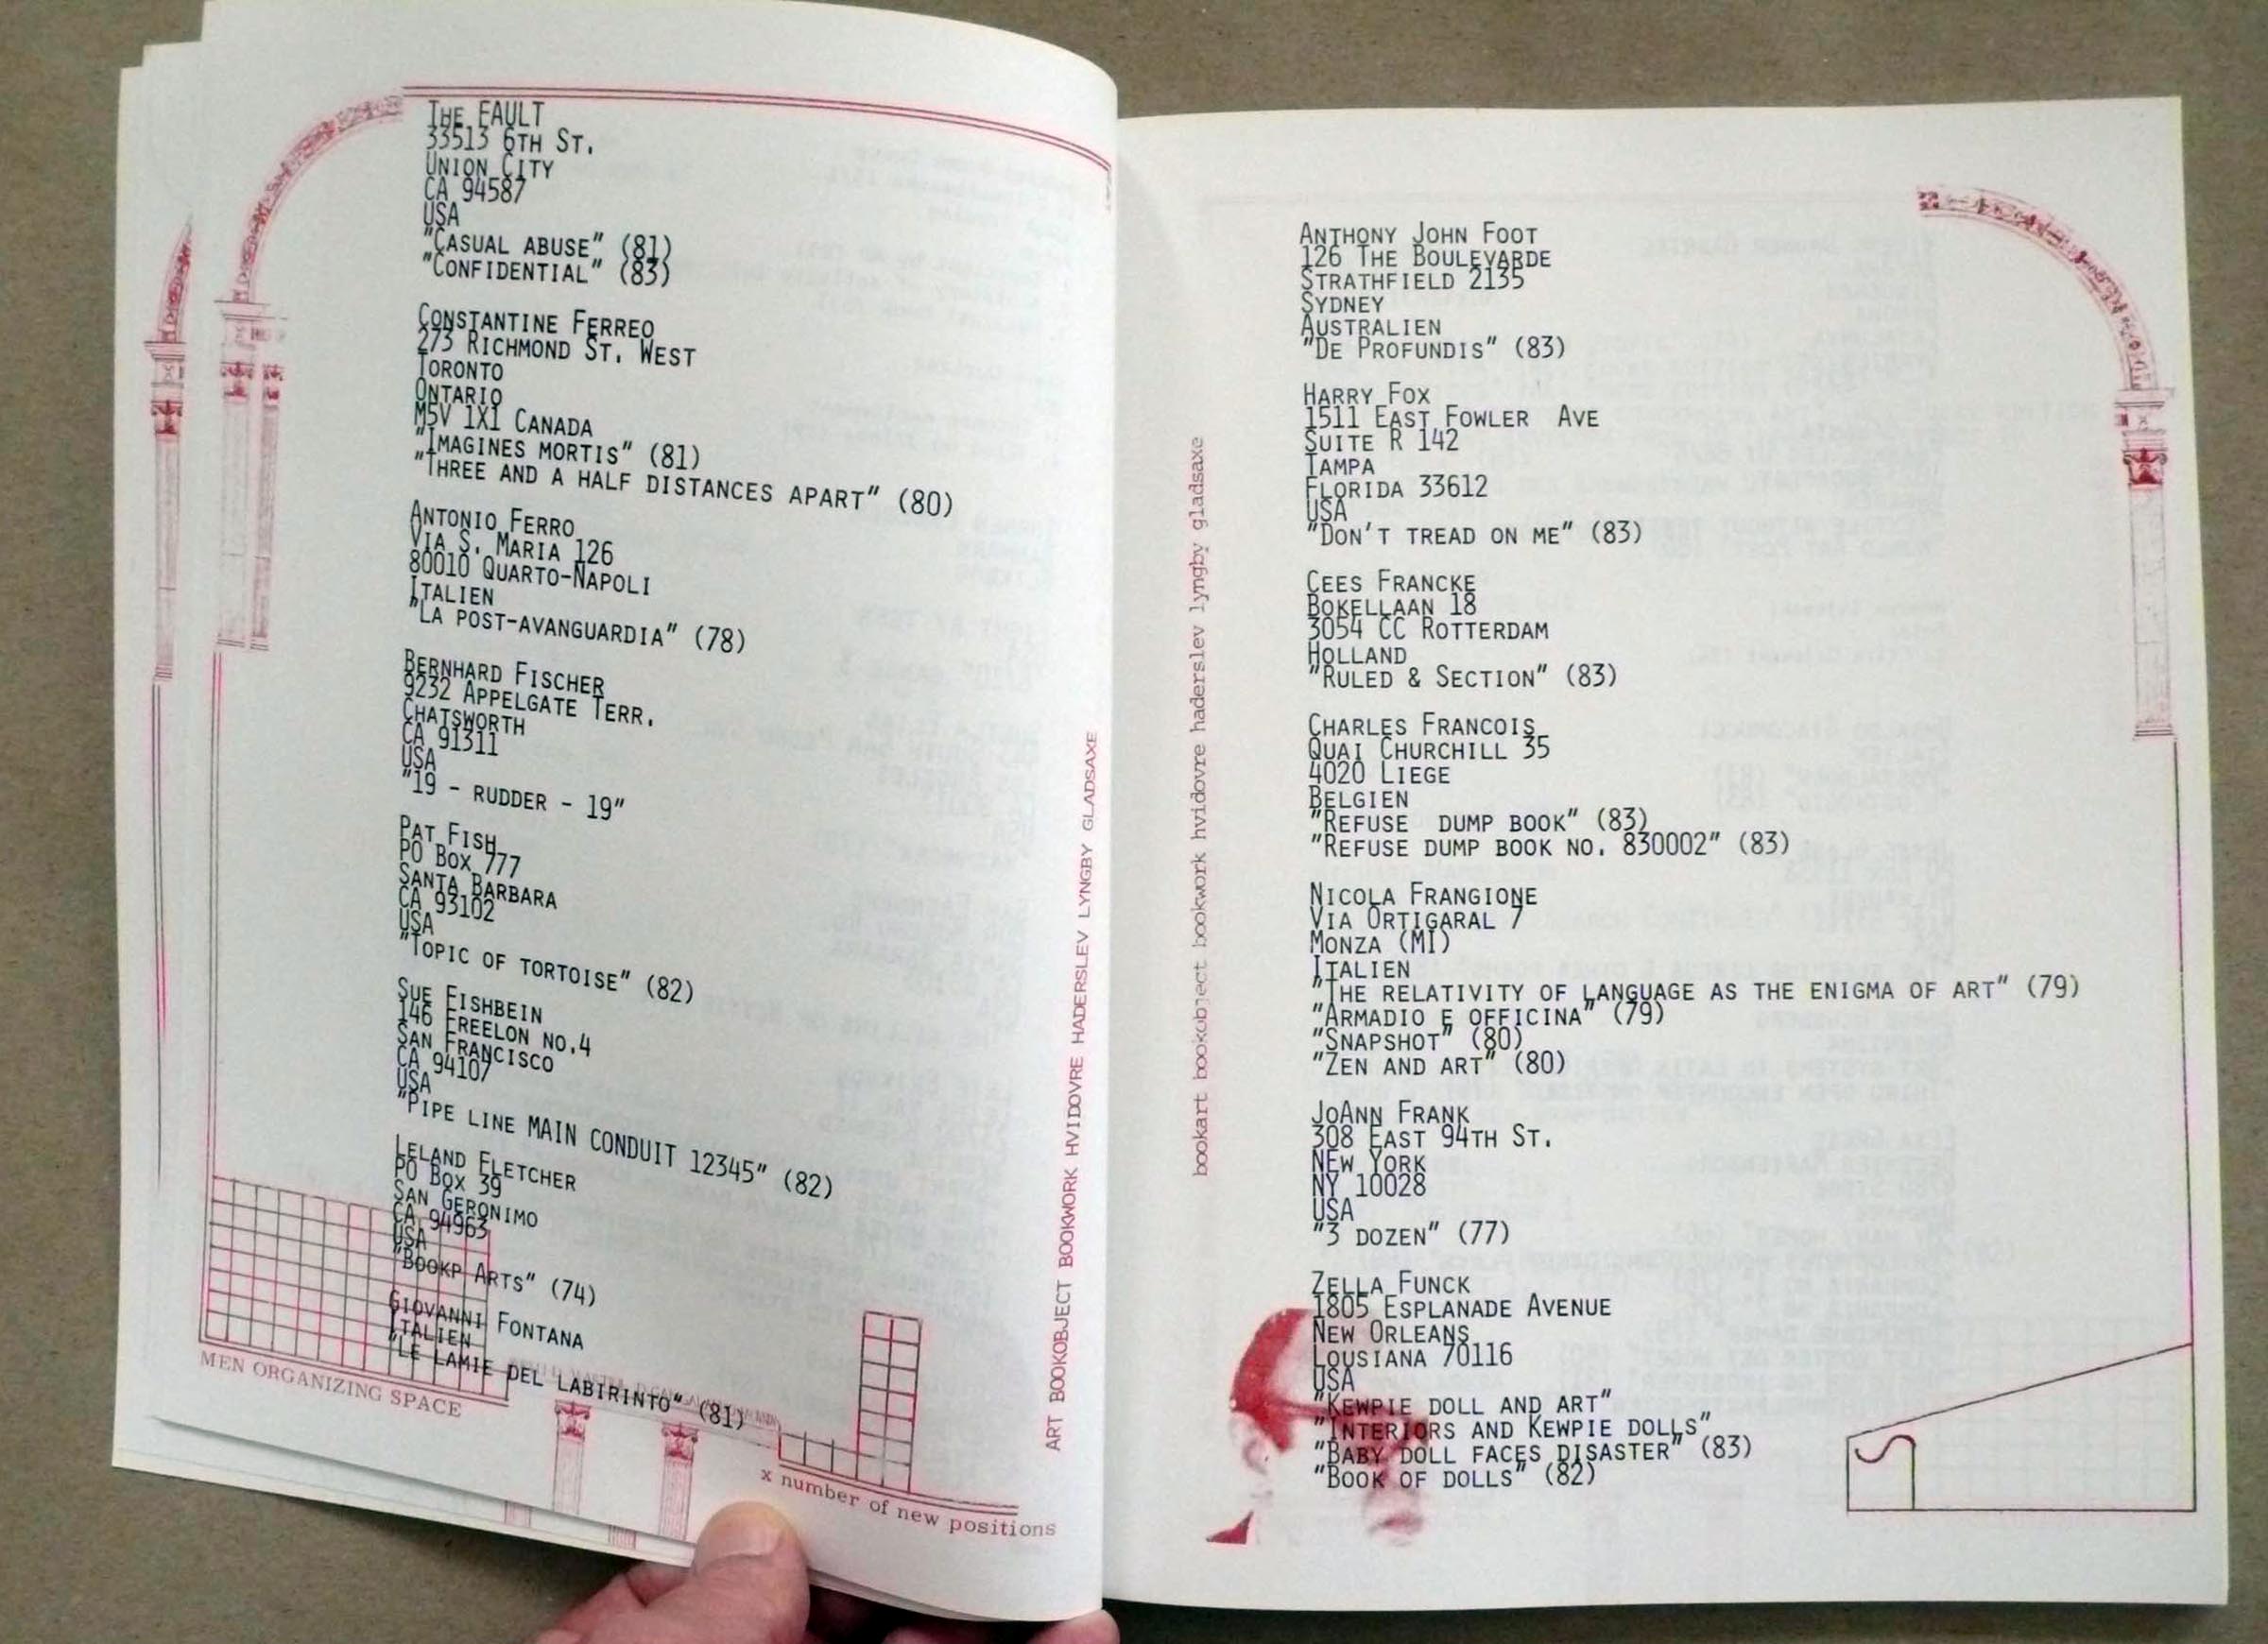 The FAULT
33513 6th St.
Union City
CA 94587
USA
"Casual abuse" (81)
"Confidential" (83)
Constantine Ferreo
273 Richmond St. West
Toronto
Ontario
M5V 1X1 Canada
"Imagines mortis" (81)
"Three and a half distances apart" (80)
Antonio Ferro
Via S. Maria 126
80010 Quarto-Napoli
Italien
"La post-avanguardia" (78)
Bernhard Fischer
9232 Appelgate Terr.
Chatsworth
CA 91311
USA
"19 - rudder - 19"
Pat Fish
PO Box 777
Santa Barbara
CA 93102
USA
"Topic of tortoise" (82)
Sue Fishbein
146 Freelon no.4
San Francisco
CA 94107
USA
"Pipe line MAIN CONDUIT 12345" (82)
Leland Fletcher
PO Box 39
San Geronimo
CA 94963
USA
"Bookp Arts" (74)
Giovanni Fontana
Italien
"Le lamie del labirinto" (81)
MEN ORGANIZING SPACE
x number of new positions
ART BOOKOBJECT BOOKWORK HVIDOVRE HADERSLEV LYNGBY GLADSAXE
bookart bookobject bookwork hvidovre haderslev lyngby gladsaxe
Anthony John Foot
126 The Boulevarde
Strathfield 2135
Sydney
Australien
"De Profundis" (83)
Harry Fox
1511 East Fowler Ave
Suite R 142
Tampa
Florida 33612
USA
"Don't tread on me" (83)
Cees Francke
Bokellaan 18
3054 CC Rotterdam
Holland
"Ruled & Section" (83)
Charles Francois
Quai Churchill 35
4020 Liege
Belgien
"Refuse dump book" (83)
"Refuse dump book no. 830002" (83)
Nicola Frangione
Via Ortigaral 7
Monza (MI)
Italien
"The relativity of language as the enigma of art" (79)
"Armadio e officina" (79)
"Snapshot" (80)
"Zen and art" (80)
JoAnn Frank
308 East 94th St.
New York
NY 10028
USA
"3 dozen" (77)
Zella Funck
1805 Esplanade Avenue
New Orleans
Lousiana 70116
USA
"Kewpie doll and art"
"Interiors and Kewpie dolls"
"Baby doll faces disaster" (83)
"Book of dolls" (82)